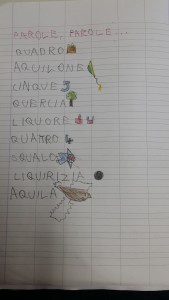 PAROLE, PAROLE...
QUADRO
AQUILONE
CINQUE
QUERCIA
LIQUORE
QUATRO 4
SQUALO
LIQUIRIZIA
AQUILA